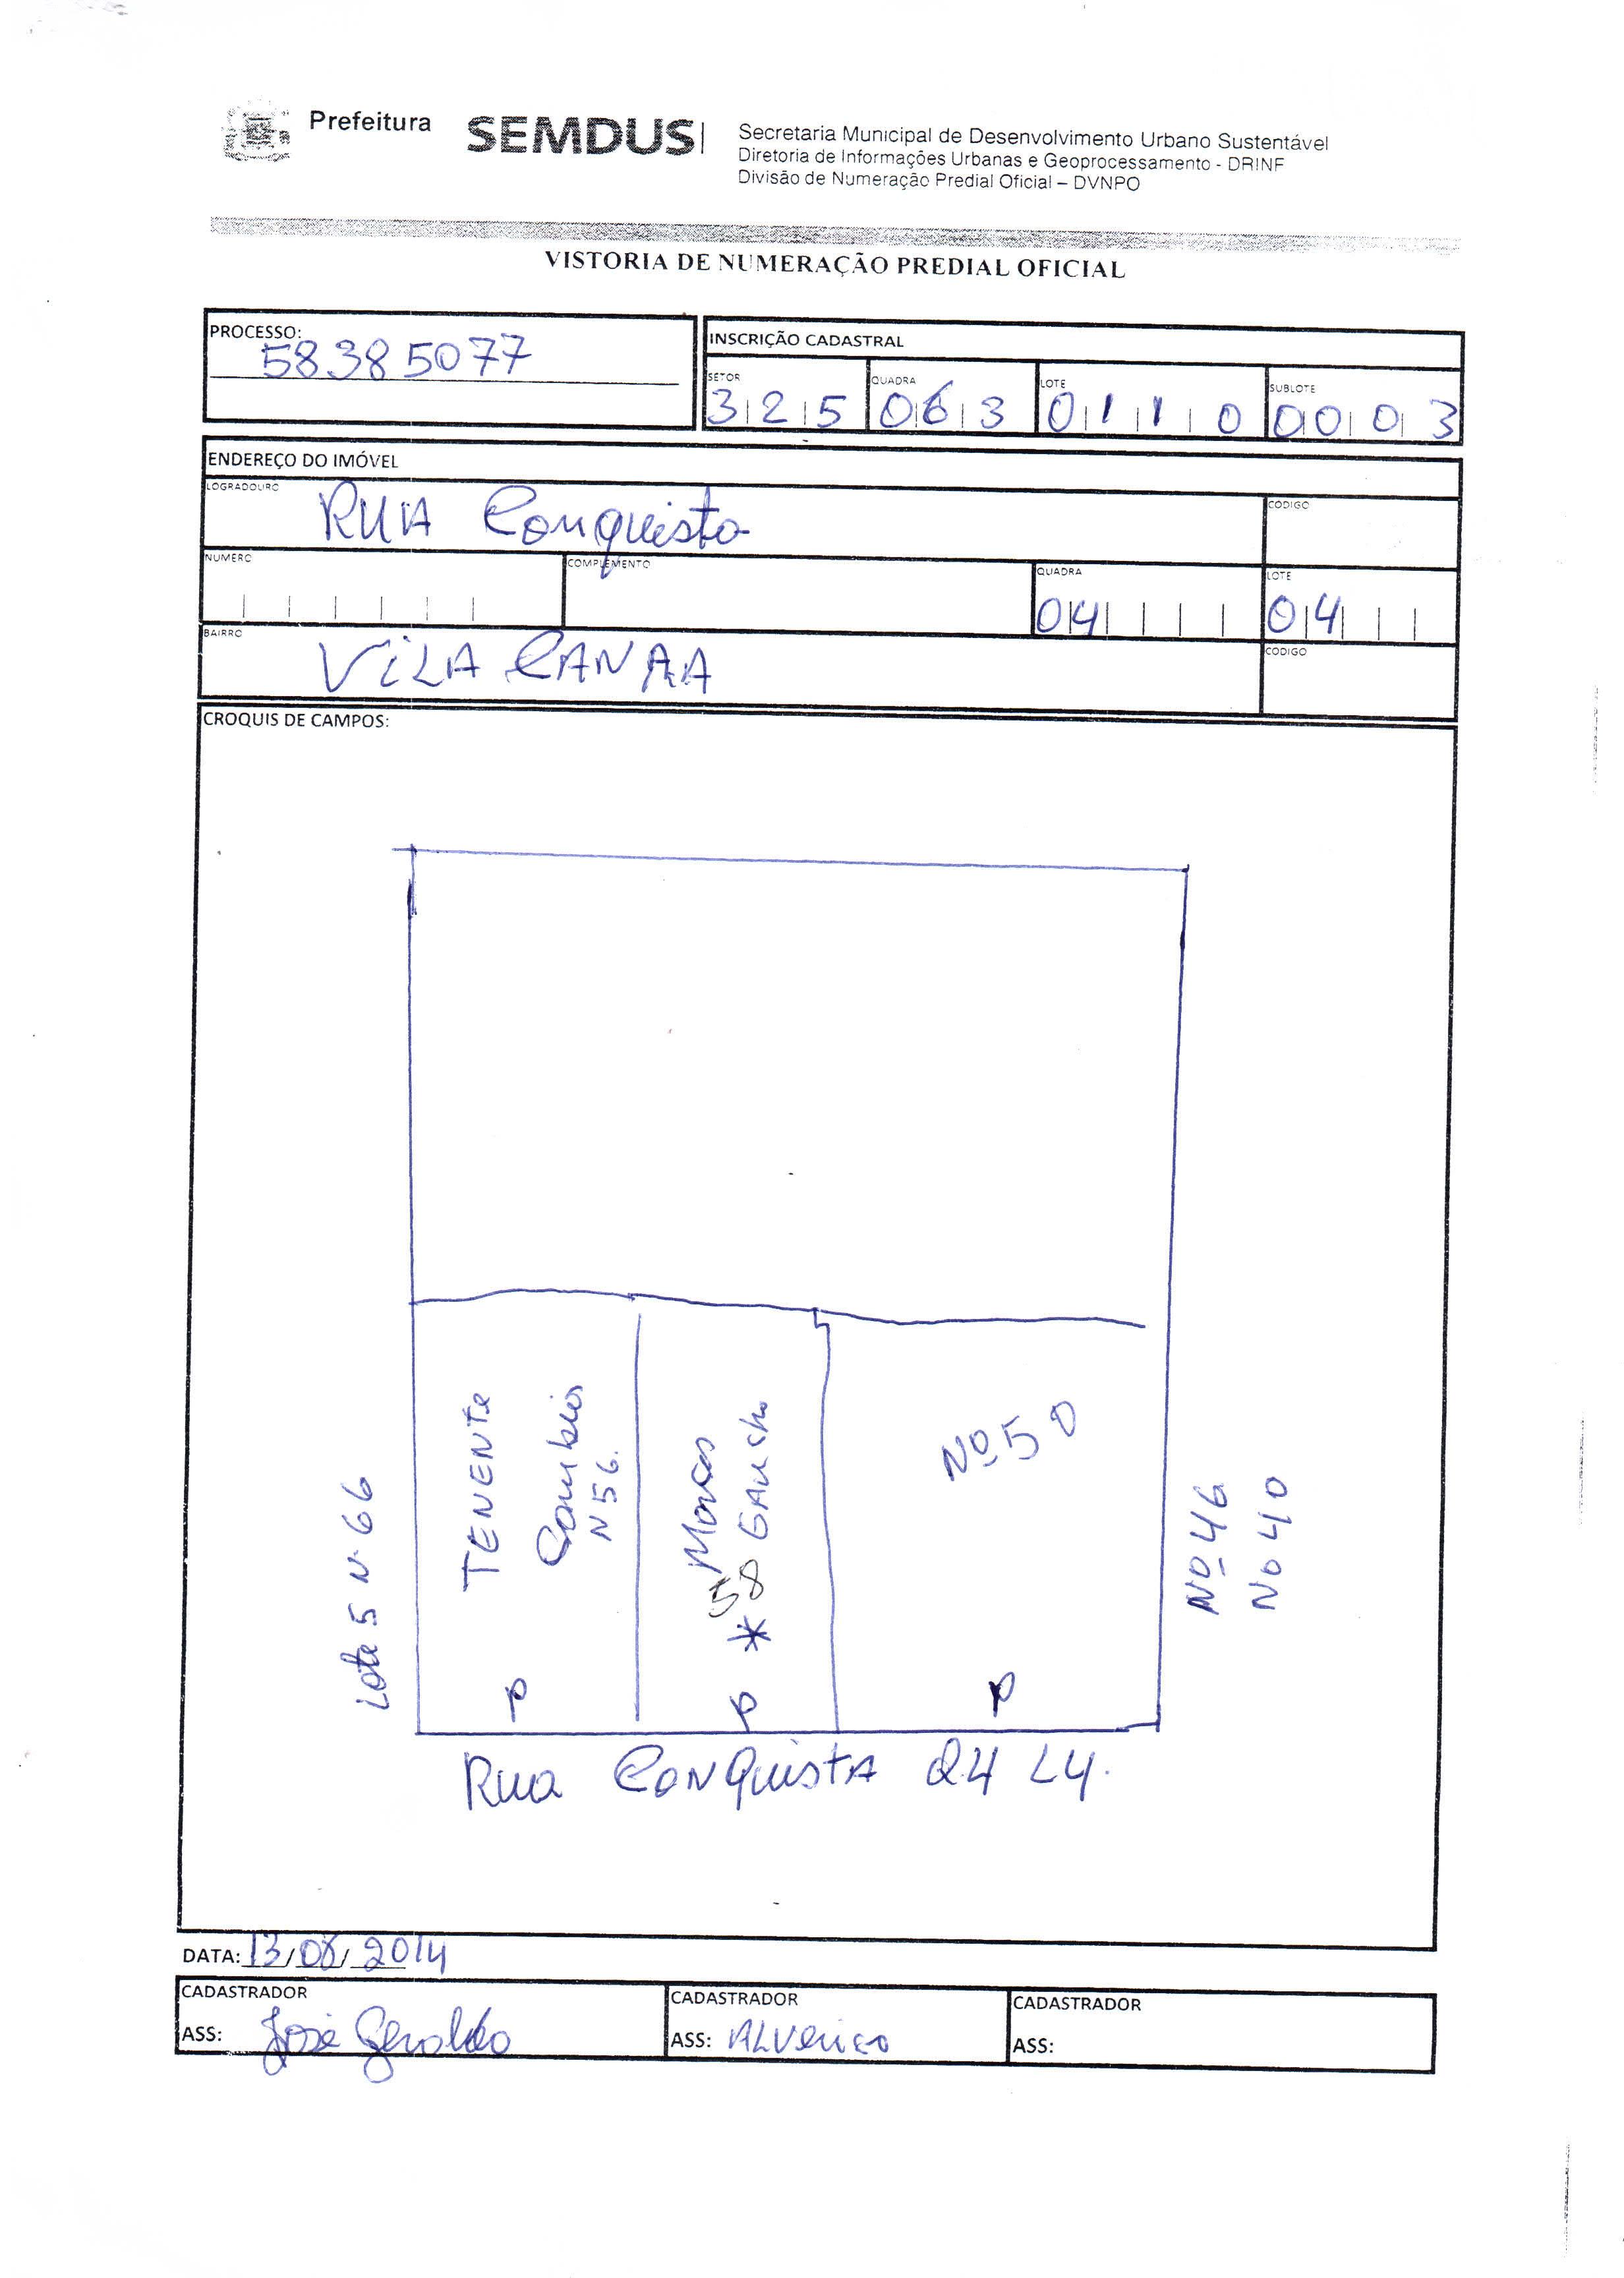 Prefeitura SEMDUS
Secretaria Municipal de Desenvolvimento Urbano Sustentável
Diretoria de Informações Urbanas e Geoprocessamento - DRINF
Divisão de Numeração Predial Oficial – DVNPO
VISTORIA DE NUMERAÇÃO PREDIAL OFICIAL
PROCESSO:
58385077
INSCRIÇÃO CADASTRAL
SETOR QUADRA LOTE SUBLOTE
325 063 0110 0003
ENDEREÇO DO IMÓVEL
LOGRADOURO RUA Conquista CODIGO
NUMERO COMPLEMENTO QUADRA LOTE
04 04
BAIRRO VILA CANAA CODIGO
CROQUIS DE CAMPOS:
Lote 5 N 66
TENENTE
Cambios
N 56.
58 GAUCHO
*
Nº 50
Nº 46
Nº 40
P P P
Rua CONQUISTA Q4 L4.
DATA: 13/08/2014
CADASTRADOR CADASTRADOR CADASTRADOR
ASS: José Geraldo ASS: ALVERICO ASS: